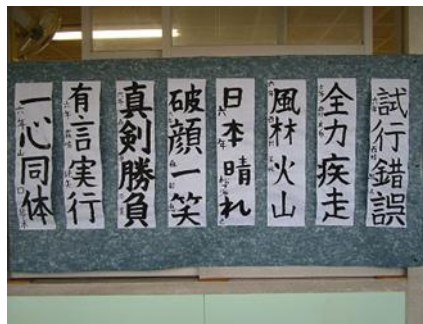 試行錯誤
全力疾走
風林火山
日本晴れ
六年
破顔一笑
真剣勝負
有言実行
六年
一心同体
六年 山口